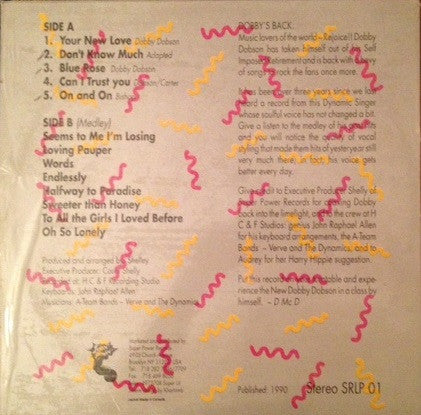 SIDE A
1. Your New Love Dobby Dobson
2. Don't Know Much Adapted
3. Blue Rose Dobby Dobson
4. Can't Trust you /Carter
5. On and On
SIDE B (Medley)
Seems to Me I'm Losing
Loving Pauper
Words
Endlessly
Halfway to Paradise
Sweeter than Honey
To All the Girls I Loved Before
Oh So Lonely
Produced and arranged by Shelley
Executive Producer: Shelley
Recorded at: H.C & F. Recording Studio
Keyboards: John 'Raphael' Allen
Musicians: A-Team Bands – Verve and The Dynamix
DOBBY'S BACK.
Music lovers of the world – Rejoice!! Dobby
Dobson has taken himself out of Self
Imposed retirement and is back with
of songs to rock the fans once more.
It's been over three years since we last
heard a record from this Dynamic Singer
whose soulful voice has not changed a bit.
Give a listen to the medley of his
and you will notice the same vocal
styling that made them hits of yesteryear still
very much there in fact, his voice gets
better every day.
Give credit to Executive Producer Shelly of
Super Power Records for getting Dobby
back into the limelight, and the crew at H
C & F Studios: plus John Raphael Allen
for his keyboard arrangements, the A-Team
Bands – Verve and The Dynamix and to
Audrey for her Harry Hippie suggestion.
Put this record on turntable and expe-
rience the New Dobby Dobson in a class by
himself. – D Mc D
Marketed and Distributed by
Super Power Records
Church
Brooklyn NY USA
Tel: 718 282
Fax: 718
Published: 1990
Stereo SRLP 01